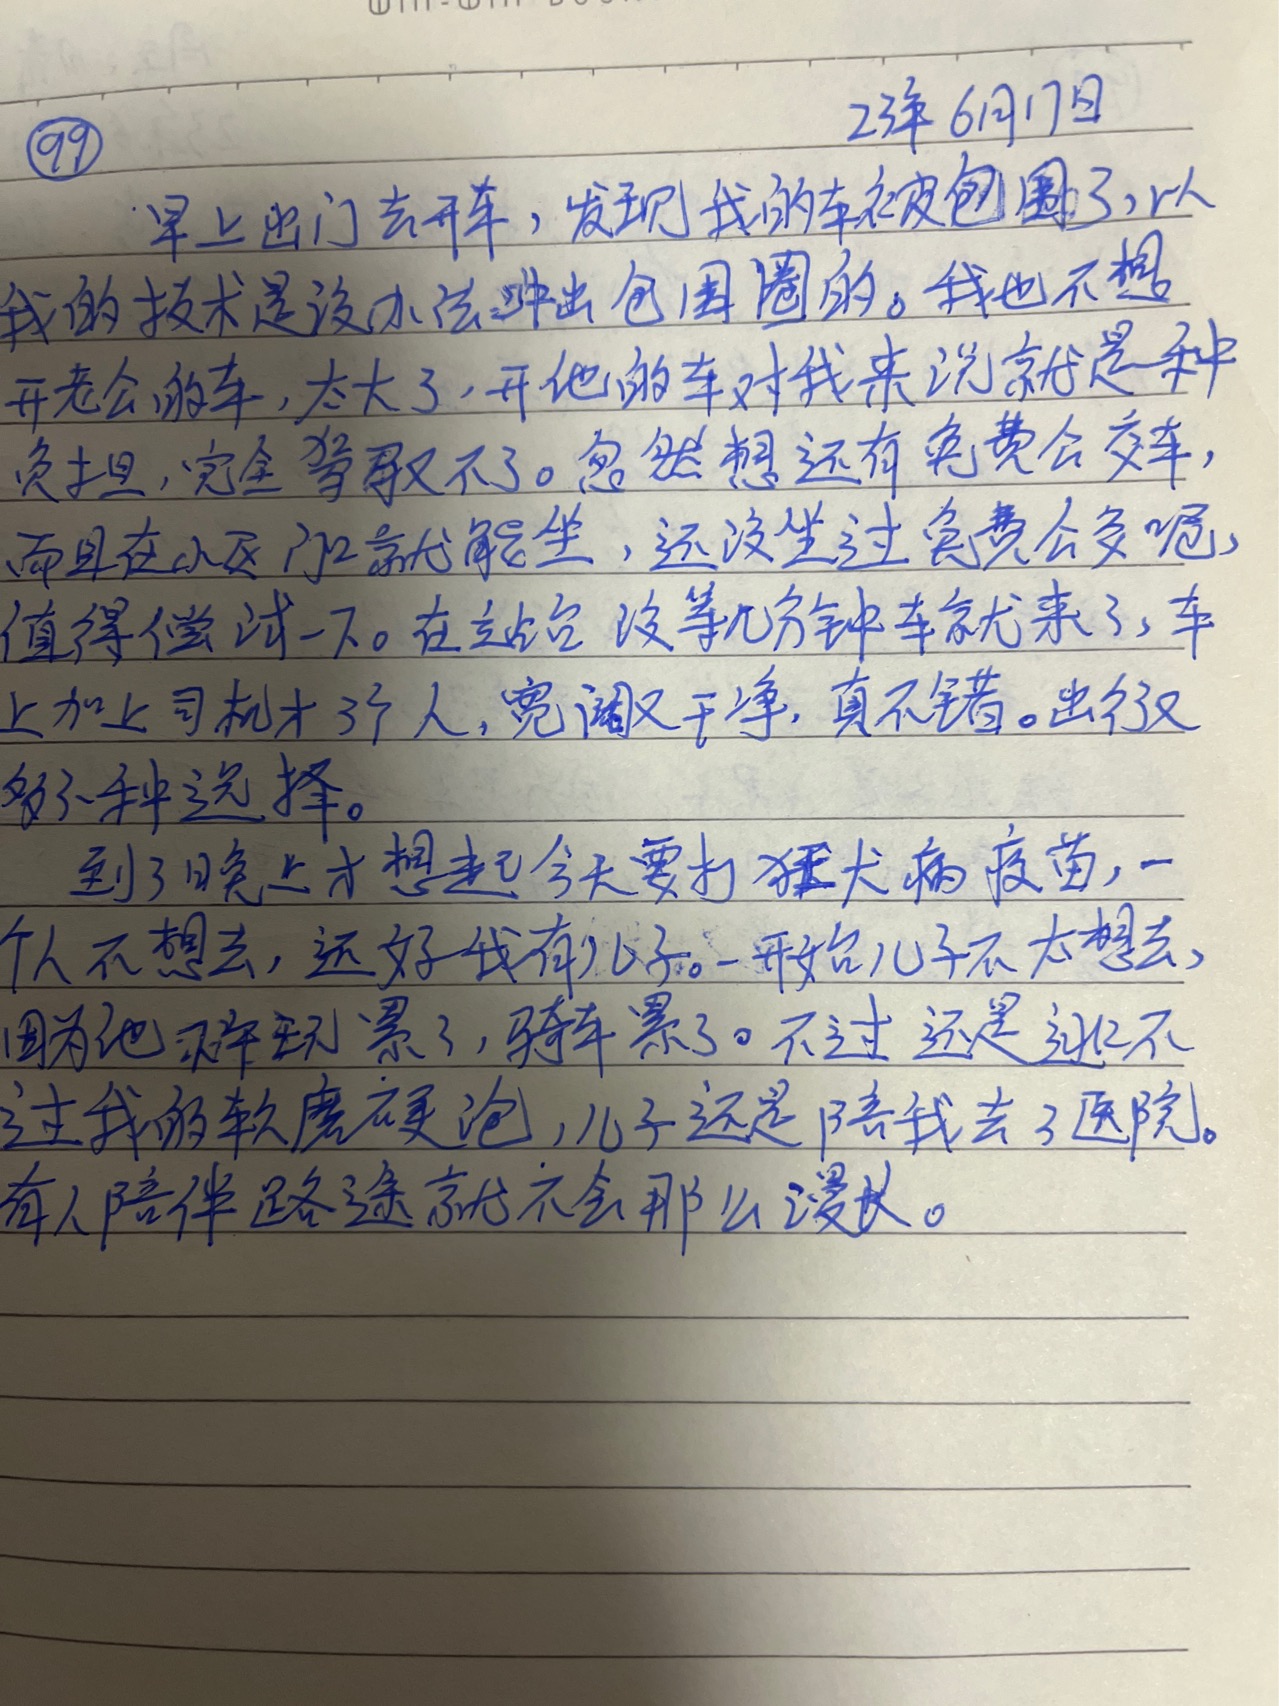 23年6月17日
99
早上出门去开车，发现我的车被包围了，以
我的技术是没办法冲出包围圈的。我也不想
开老公的车，太大了，开他的车对我来说就是一种
负担，完全驾驭不了。忽然想还有免费公交车，
而且在小区门口就能坐，还没坐过免费公交呢，
值得尝试一下。在站台没等几分钟车就来了，车
上加上司机才3个人，宽阔又干净，真不错。出行又
多了一种选择。
到了晚上才想起今天要打狂犬病疫苗，一
个人不想去，还好我有儿子。一开始儿子不太想去，
因为他玩累了，骑车累了。不过还是
过我的软磨硬泡，儿子还是陪我去了医院。
有人陪伴路途就不会那么漫长。